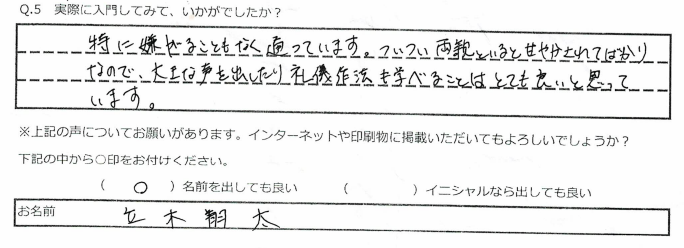 Q.5 実際に入門してみて、いかがでしたか？
特に嫌がることもなく通っています。ついつい両親といると甘やかされてばかり
なので、大きな声を出したり礼儀作法を学べることはとても良いと思って
います。
※上記の声についてお願いがあります。インターネットや印刷物に掲載いただいてもよろしいでしょうか？
下記の中から○印をお付けください。
（ ○ ）名前を出しても良い （ ）イニシャルなら出しても良い
お名前 立木翔太